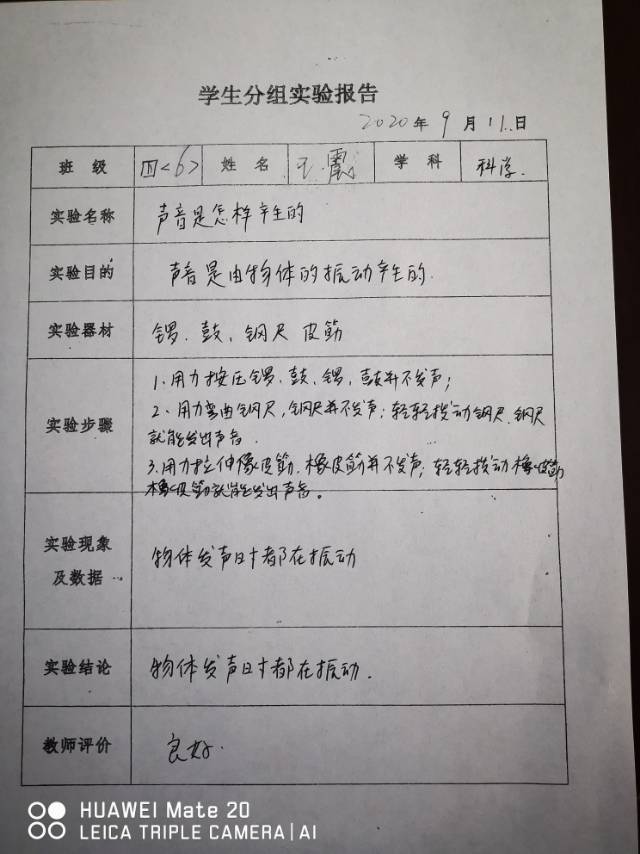 学生分组实验报告
2020年9月11日
班级 四<6> 姓名 王震 学科 科学.
实验名称 声音是怎样产生的
实验目的 声音是由物体的振动产生的.
实验器材 锣、鼓、钢尺 皮筋
1、用力按压锣、鼓、锣,鼓并不发声;
实验步骤 2、用力弯曲钢尺,钢尺并不发声;轻轻拨动钢尺,钢尺
就能发出声音.
3.用力拉伸橡皮筋,橡皮筋并不发声;轻轻拨动橡皮筋
橡皮筋就能发出声音。
实验现象
及数据 物体发声时都在振动
实验结论 物体发声时都在振动.
教师评价 良好.
HUAWEI Mate 20
LEICA TRIPLE CAMERA | AI